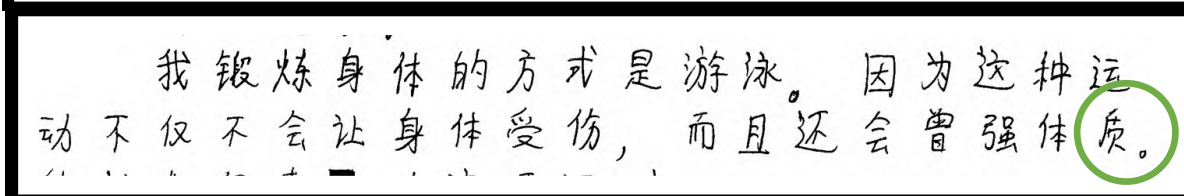 我锻炼身体的方式是游泳。因为这种运
动不仅不会让身体受份，而且还会曾强体质。